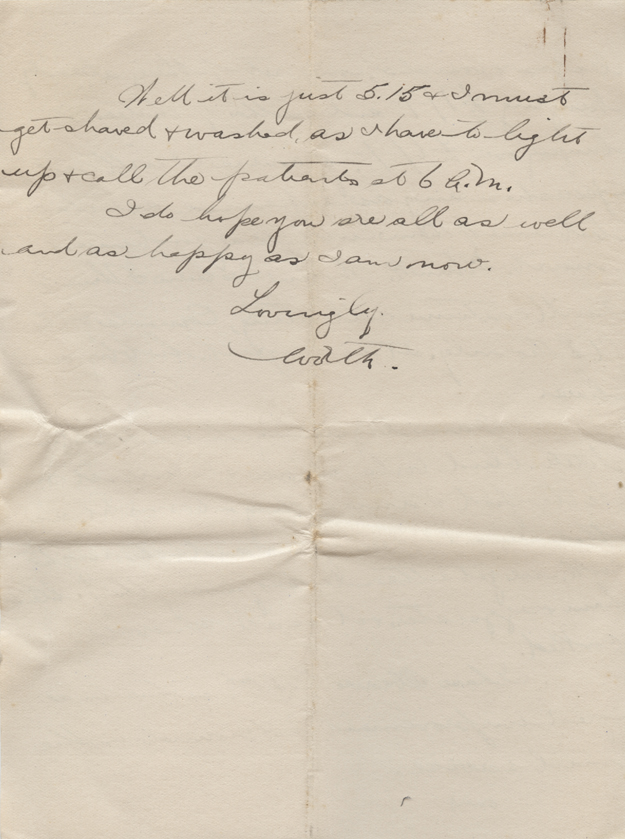 Well it is just 5.15 & I must
get shaved & washed, as I have to light
up & call the patients at 6 A.M.
I do hope you are all as well
and as happy as I am now.
Lovingly.